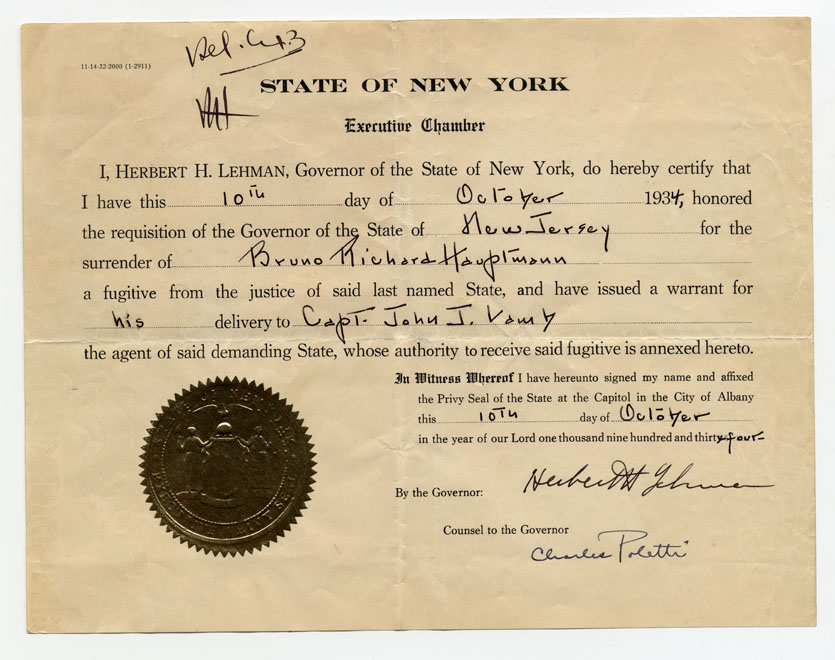 11-14-32-2000 (1-2911)
STATE OF NEW YORK
Executive Chamber
I, HERBERT H. LEHMAN, Governor of the State of New York, do hereby certify that
I have this 10TH day of October 1934, honored
the requisition of the Governor of the State of New Jersey for the
surrender of Bruno Richard Hauptmann
a fugitive from the justice of said last named State, and have issued a warrant for
his delivery to Capt. John J. Lamb
the agent of said demanding State, whose authority to receive said fugitive is annexed hereto.
In Witness Whereof I have hereunto signed my name and affixed
the Privy Seal of the State at the Capitol in the City of Albany
this 10TH day of October
in the year of our Lord one thousand nine hundred and thirty-four-
By the Governor: Herbert H Lehman
Counsel to the Governor
Charles Poletti